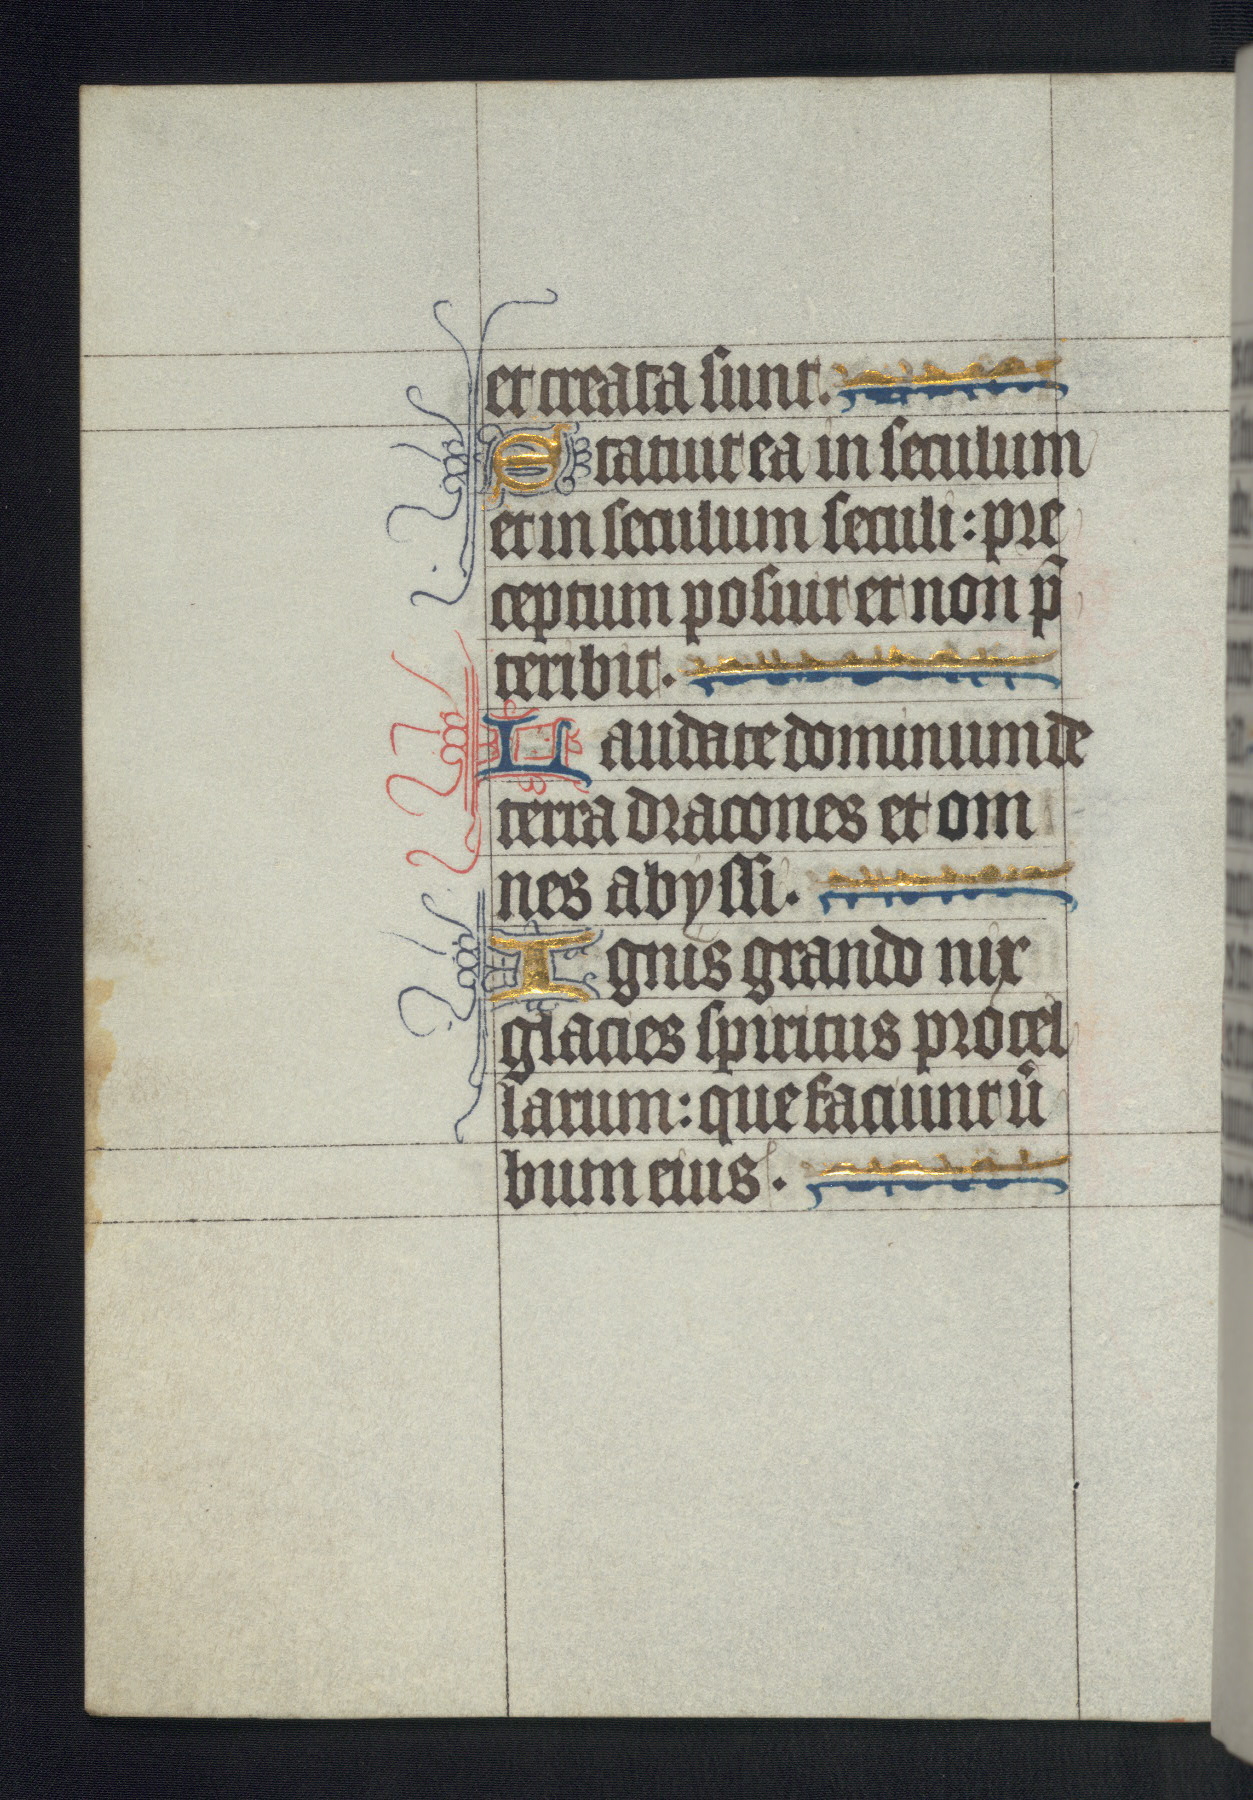 et creata sunt.
Statuit ea in seculum
et in seculum seculi: pre
ceptum posuit et non p̄
teribit.
Laudate dominum de
terra dracones et om
nes abyssi.
Ignis grando nix
glacies spiritus procel
larum: que faciunt ū
bum eius.